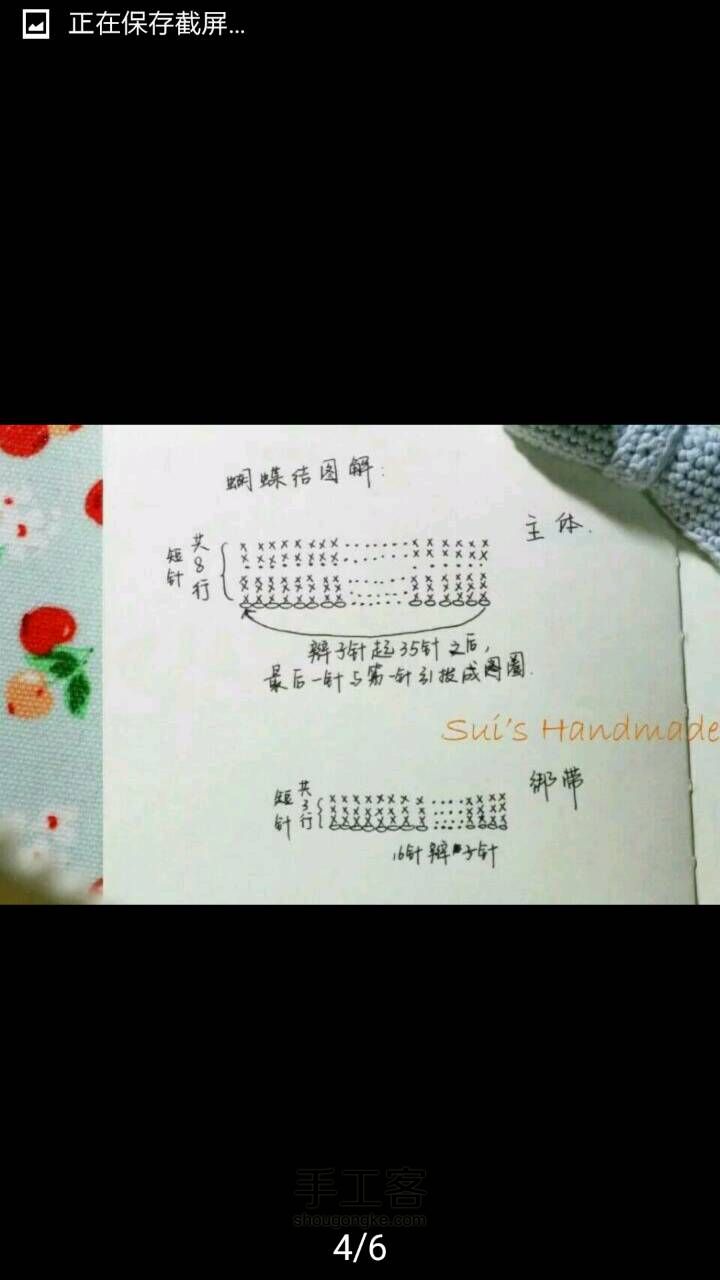 正在保存截屏...
蝴蝶结图解:
主体.
短针
共8行
辫子针起35针之后,
最后一针与第一针引拔成圆圈.
Sui's Handmade
绑带
短针
共3行
16针辫子针
手工客
shougongke.com
4/6